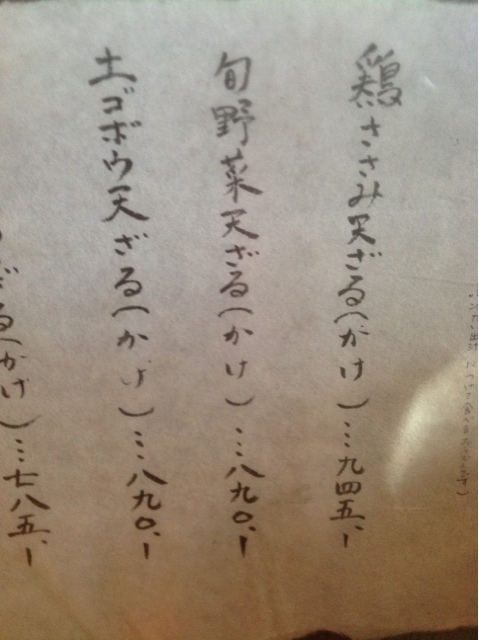 鶏ささみ天ざる(かけ)…九四五、-
旬野菜天ざる(かけ)…八九〇、-
土ゴボウ天ざる(かけ)…八九〇、-
ざる(かけ)…七八五、-